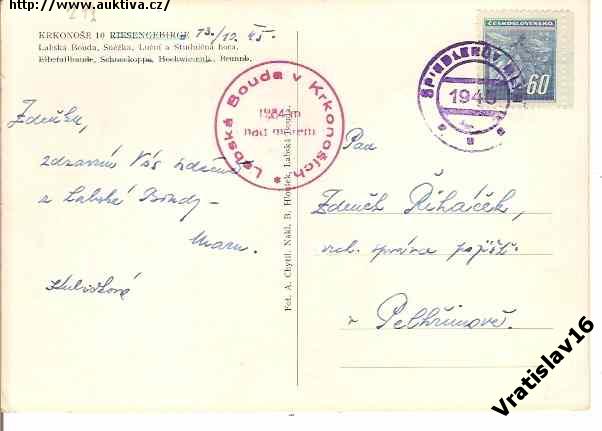 http://www.auktiva.cz/
KRKONOŠE 10 RIESENGEBIRGE 13/10. 45.
Labská Bouda, Sněžka, Luční a Studničná hora.
Elbefallbaude, Schneekoppe, Hochwiesenb., Brunnb.
Labská Bouda v Krkonoších *
1284 m
nad mořem
1945
ČESKOSLOVENSKO
60
Zdeňku,
zdravím Vás srdečně
z Labské Boudy -
Kubišková
Fot. A. Chytil. Nakl. B. Hloušek, Labská Bouda.
Pan
Zdeněk Řiháček,
správce pojišť.
v Pelhřimově.
Vratislav16